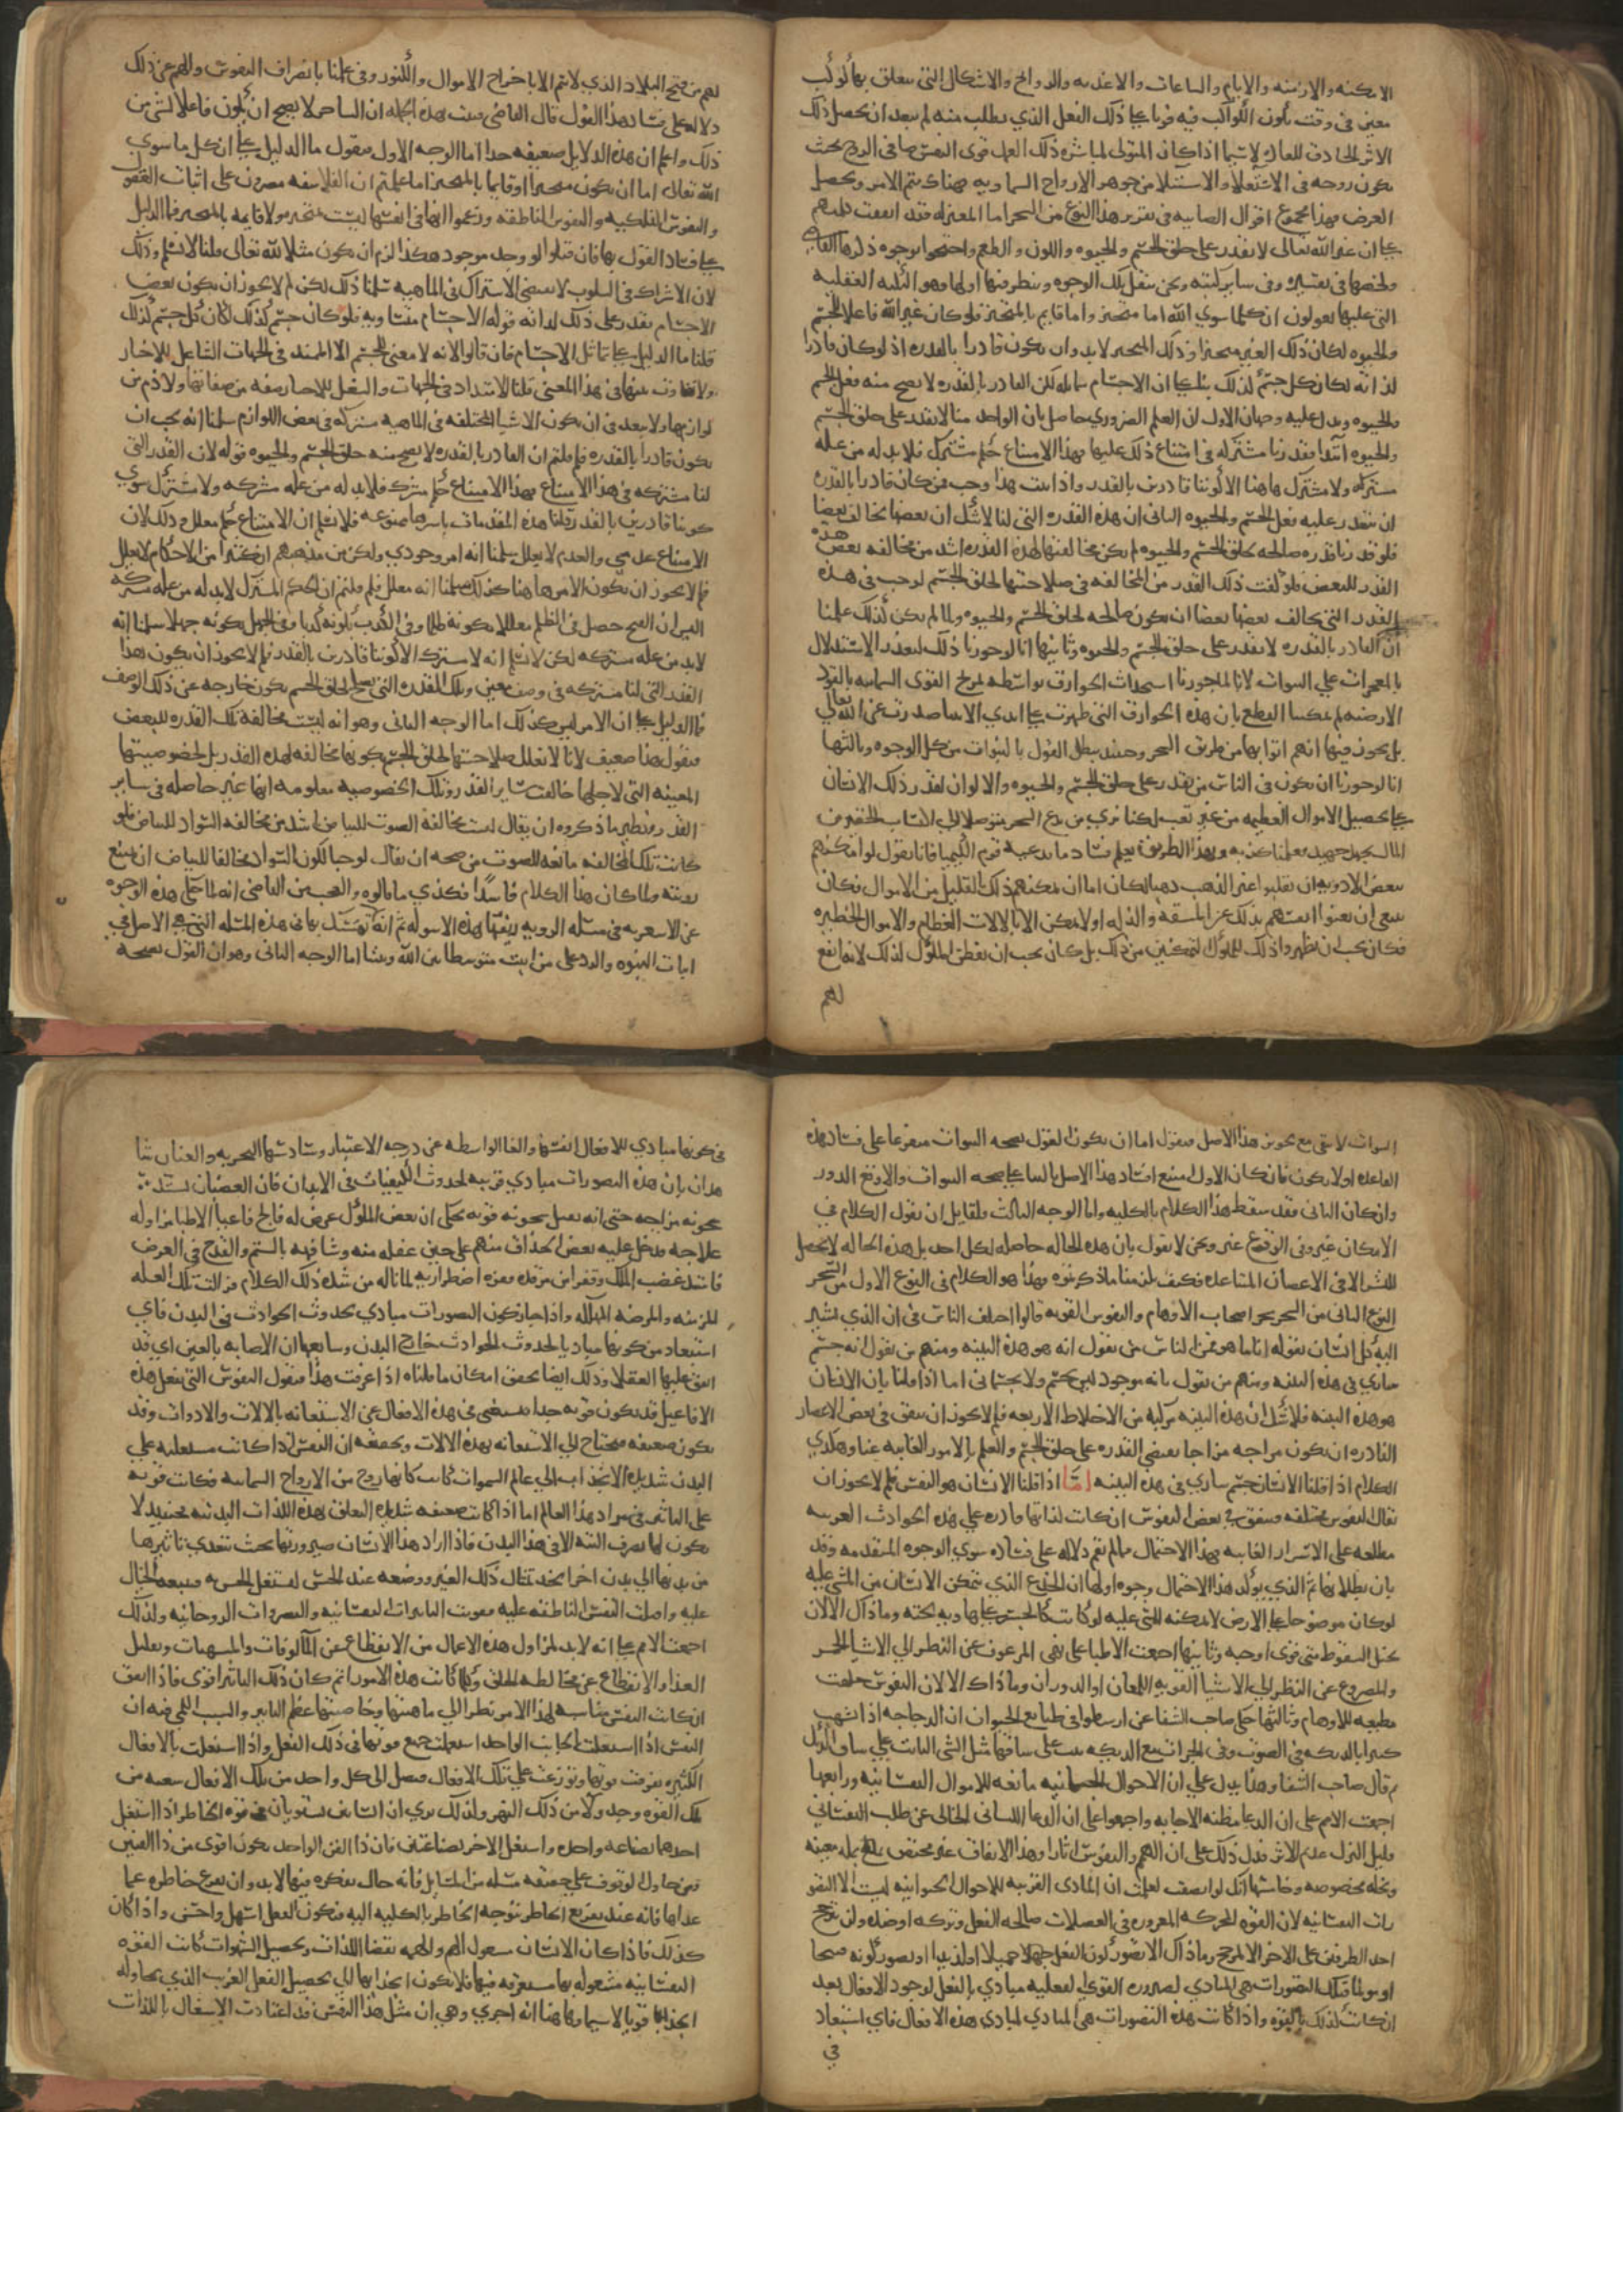 الامكنه والازمنه والايام والساعات والاغذيه والروائح والاشكال التى سعلق بها كوكب
معين فى وقت يكون الكواكب فيه قويا على ذلك الفعل الذي يطلب منه لم يبعد ان يحصل ذلك
الاثر الخارق للعاده لا سيما اذا كان المتولى لمباشره ذلك العمل قوى النفس صافى الروح بحث
يكون روحه فى الاستعلا والاستيلا من جوهر الارواح السماويه فهناك يتم الامر ويحصل
الغرض فهذا مجموع اقوال الصابيه فى تقرير هذا النوع من السحر اما المعتزله فقد اتفقت كلمتهم
على ان غير الله تعالى لا يقدر على خلق الجسم والحيوه واللون والطعم واحتجوا بوجوه ذكرها القاضي
ولخصها فى تفسيره وفى ساير كتبه ونحن ننقل تلك الوجوه وننظر فيها اولها وهو النكته العقليه
التى عليها يعولون ان كلما سوى الله اما متحيز واما قايم بالمتحيز فلو كان غير الله فاعلا للجسم
والحيوه لكان ذلك الغير متحيزا وذلك المتحيز لا بد وان يكون قادرا بالقدره اذ لو كان قادرا
لذاته لكان كل جسم كذلك بنا على ان الاجسام متماثله لكن القادر بالقدره لا يصح منه فعل الجسم
والحيوه ويدل عليه وجهان الاول ان العلم الضروري حاصل بان الواحد منا لا يقدر على خلق الجسم
والحيوه ابتدا فقدرنا مشتركه فى امتناع ذلك عليها فهذا الامتناع حكم مشترك فلا بد له من عله
مشتركه ولا مشترك هاهنا الا كوننا قادرين بالقدر واذا ثبت هذا وجب فيمن كان قادرا بالقدره
ان يتعذر عليه فعل الجسم والحيوه الثانى ان هذه القدره التى لنا لا شك ان بعضها يخالف بعضا
فلو قدرنا قدره صالحه لخلق الجسم والحيوه لم يكن مخالفتها لهذه القدره اشد من مخالفه بعض هذه
القدر للبعض فلو كفت ذلك القدر من المخالفه فى صلاحيتها لخلق الجسم لوجب فى هذه
القدر التى يخالف بعضها بعضا ان يكون صالحه لخلق الجسم والحيوه ولما لم يكن كذلك علمنا
ان القادر بالقدره لا يقدر على خلق الجسم والحيوه وثانيها انا لو جوزنا ذلك لتعذر الاستدلال
بالمعجزات على النبوات لانا لما جوزنا استحداث الخوارق بواسطه تمزيج القوى السمائيه بالقوى
الارضيه لم يمكننا القطع بان هذه الخوارق التى ظهرت على ايدي الانبيا صدرت عن الله تعالي
بل يجوز فيها انهم اتوا بها من طريق السحر وحينئذ يبطل القول بالنبوات من كل الوجوه وثالثها
انا لو جوزنا ان يكون فى الناس من يقدر على خلق الجسم والحيوه والالوان لقدر ذلك الانسان
على تحصيل الاموال العظيمه من غير تعب لكنا نرى من يدعي السحر متوصلا الى اكتساب الحقير من
المال بجهد جهيد فعلمنا كذبه وبهذا الطريق يعلم فساد ما يدعيه قوم الكيميا فانا نقول لو امكنهم
ببعض الادويه ان يقلبوا غير الذهب ذهبا لكان اما ان يمكنهم ذلك بالقليل من الاموال فكان
ينبغى ان يغنوا انفسهم بذلك عن المشقه والذله او لا يمكن الا بالالات العظام والاموال الخطيره
فكان يجب ان يظهروا ذلك للملوك المتمكنين من ذلك بل كان يجب ان يفطن الملوك لذلك لانه انفع
لهم
لهم من فتح البلاد الذي لا يتم الا باخراج الاموال والكنوز وفى علمنا بانصراف النفوس والهمم عن ذلك
دلاله على فساد هذا القول قال القاضى فثبت بهذه الجمله ان الساحر لا يصح ان يكون فاعلا لشى من
ذلك واعلم ان هذه الدلايل ضعيفه جدا اما الوجه الاول فنقول ما الدليل على ان كل ما سوي
الله تعالى اما ان يكون متحيزا او قايما بالمتحيز اما علمتم ان الفلاسفه مصرون على اثبات العقول
والنفوس الفلكيه والنفوس الناطقه وزعموا انها فى انفسها ليست بمتحيزه ولا قايمه بالمتحيز فما الدليل
على فساد القول بها فان قالوا لو وجد موجود هكذا لزم ان يكون مثلا لله تعالى قلنا لا نسلم وذلك
لان الاشتراك فى السلوب لا يقتضى الاشتراك فى الماهيه سلمنا ذلك لكن لم لا يجوز ان يكون بعض
الاجسام يقدر على ذلك لذاته قوله الاجسام متساويه فلو كان جسم كذلك لكان كل جسم كذلك
قلنا ما الدليل على تماثل الاجسام فان قالوا لانه لا معنى للجسم الا الممتد فى الجهات الشاغل للاحياز
ولا تفاوت بينها فى هذا المعنى قلنا الامتداد فى الجهات والشغل للاحياز صفه من صفاتها ولازم من
لوازمها ولا يبعد فى ان يكون الاشيا المختلفه فى الماهيه مشتركه فى بعض اللوازم سلمنا انه يجب ان
يكون قادرا بالقدره فلم قلتم ان القادر بالقدره لا يصح منه خلق الجسم والحيوه قوله لان القدر التى
لنا مشتركه فى هذا الامتناع فهذا الامتناع حكم مشترك فلا بد له من عله مشتركه ولا مشترك سوي
كوننا قادرين بالقدر قلنا هذه المقدمات باسرها ممنوعه فلا نسلم ان الامتناع حكم معلل وذلك لان
الامتناع عدمي والعدم لا يعلل سلمنا انه امر وجودي ولكن من مذهبهم ان كثيرا من الاحكام لا يعلل
فلم لا يجوز ان يكون الامر هاهنا كذلك سلمنا انه معلل فلم قلتم ان الحكم المشترك لا بد له من عله مشتركه
اليس ان القبح حصل فى الظلم معللا بكونه ظلما وفى الكذب بكونه كذبا وفى الجهل بكونه جهلا سلمنا انه
لا بد من عله مشتركه لكن لا نسلم انه لا مشترك الا كوننا قادرين بالقدر فلم لا يجوز ان يكون هذا
القدر التى لنا مشتركه فى وصف معين وتلك القدره التى يصلح لخلق الجسم يكون خارجه عن ذلك الوصف
فما الدليل على ان الامر ليس كذلك اما الوجه الثانى وهو انه ليست مخالفه تلك القدره للبعض
فنقول هذا ضعيف لانا لا نعلل صلاحيتها لخلق الجسم بكونها مخالفه لهذه القدر بل لخصوصيتها
المعينه التى لاجلها خالفت ساير القدر وتلك الخصوصيه معلومه انها غير حاصله فى ساير
القدر ونظير ما ذكروه ان يقال ليست مخالفه الصوت للبياض اشد من مخالفه السواد للبياض فلو
كانت تلك المخالفه مانعه للصوت من صحه ان يقال لوجب لكون السواد مخالفا للبياض ان يمتنع
رويته ولما كان هذا الكلام فاسدا فكذي ما قالوه والعجب من القاضى انه لما حكى هذه الوجوه
عن الاشعريه فى مسئله الرويه وزيفها بهذه الاسوله ثم انه تمسك بها فى هذه المسئله التى هي الاصل فى
اثبات النبوه والرد على من اثبت متوسطا بين الله وبيننا اما الوجه الثانى وهو ان القول بصحه
النبوات لا يبقى مع تجويز هذا الاصل فنقول اما ان يكون القول بصحه النبوات متفرعا على فساد هذه
القاعده او لا يكون فان كان الاول امتنع افساد هذا الاصل بالبنا على صحه النبوات والا وقع الدور
وان كان الثانى فقد سقط هذا الكلام بالكليه واما الوجه الثالث فلقايل ان يقول الكلام فى
الامكان غير وفى الوقوع غير ونحن لا نقول بان هذه الحاله حاصله لكل احد بل هذه الحاله لا يحصل
للبشر الا فى الاعصار المتباعده فكيف يلزمنا ما ذكرتموه فهذا هو الكلام فى النوع الاول من السحر
النوع الثانى من السحر سحر اصحاب الاوهام والنفوس القويه قالوا اختلف الناس فى ان الذي يشير
اليه كل انسان بقوله انا ما هو فمن الناس من يقول انه هو هذه البنيه ومنهم من يقول انه جسم
ساري فى هذه البنيه ومنهم من يقول بانه موجود ليس بجسم ولا جسمانى اما اذا قلنا بان الانسان
هو هذه البنيه فلا شك ان هذه البنيه مركبه من الاخلاط الاربعه فلم لا يجوز ان يتفق فى بعض الاعصار
النادره ان يكون مزاجه مزاجا يقتضى القدره على خلق الجسم والعلم بالامور الغايبه عنا وهكذي
الكلام اذا قلنا الانسان جسم ساري فى هذه البنيه اما اذا قلنا الانسان هو النفس فلم لا يجوز ان
يقال النفوس مختلفه فيتفق فى بعض النفوس ان كانت لذاتها قادره على هذه الحوادث الغريبه
مطلعه على الاسرار الغايبه فهذا الاحتمال مما لم تقم دلاله على فساده سوي الوجوه المتقدمه وقد
بان بطلانها ثم الذي يوكد هذا الاحتمال وجوه اولها ان الجذع الذي يتمكن الانسان من المشى عليه
لو كان موضوعا على الارض لا يمكنه المشى عليه لو كانت كالجسر على هاويه تحته وما ذاك الا لان
تخيل السقوط متى قوى اوجبه وثانيها اجتمعت الاطبا على نهى المرعوف عن النظر الي الاشيا الحمر
والمصروع عن النظر الى الاشيا القويه اللمعان او الدوران وما ذاك الا لان النفوس خلقت
مطيعه للاوهام وثالثها حكى صاحب الشفا عن ارسطو فى طبايع الحيوان ان الدجاجه اذا تشبهت
كثيرا بالديكه فى الصوت وفى الحراب مع الديكه نبت على ساقها مثل الشى النابت علي ساق الديك
ثم قال صاحب الشفا وهذا يدل على ان الاحوال الجسمانيه تابعه للاحوال النفسانيه ورابعها
اجمعت الامم على ان الدعا مظنه الاجابه واجمعوا على ان الدعا اللسانى الخالى عن طلب النفسانى
قليل النزل عديم الاثر فدل ذلك على ان للهمم والنفوس اثارا وهذا الاتفاق غير مختص بمله معينه
ونحله مخصوصه وخامسها انك لو انصفت لعلمت ان المبادى القريبه للاحوال الحيوانيه ليست الا التصو
رات النفسانيه لان القوه المحركه المغروزه فى العضلات صالحه للفعل وتركه او ضده ولن يترجح
احد الطرفين على الاخر الا لمرجح وما ذاك الا تصور كون الفعل جميلا او لذيذا او تصور كونه قبيحا
او مولما فتلك التصورات هى المبادي لصيروره القوى الفعليه مبادي بالفعل لوجود الافعال بعد
ان كانت كذلك بالقوه واذا كانت هذه التصورات هى المبادي لمبادي هذه الافعال فاي استبعاد
فى
فى كونها مبادي للافعال انفسها والغا الواسطه عن درجه الاعتبار وسادسها التجربه والعيان شا
هدان بان هذه التصورات مبادي قريبه لحدوث الكيفيات فى الابدان فان الغضبان يشتد
سخونه مزاجه حتى انه يفيد سخونه قويه يحكى ان بعض الملوك عرض له فالج فاعيا الاطبا مزاوله
علاجه فدخل عليه بعض الحذاق منهم على حين غفله منه وشافهه بالشتم والقدح فى العرض
فاشتد غضب الملك وقفز من مرقده قفزه اضطراريه لما ناله من شده ذلك الكلام فزالت تلك العله
المزمنه والمرضه المهلكه واذا جاز كون التصورات مبادي لحدوث الحوادث فى البدن فاي
استبعاد من كونها مبادي لحدوث الحوادث خارج البدن وسابعها ان الاصابه بالعين امر قد
اتفق عليها العقلا وذلك ايضا يحقق امكان ما قلناه اذا عرفت هذا فنقول النفوس التى تفعل هذه
الافاعيل قد يكون قويه جدا فيستغنى فى هذه الافعال عن الاستعانه بالالات والادوات وقد
يكون ضعيفه فيحتاج الى الاستعانه بهذه الالات وتحقيقه ان النفس اذا كانت مستعليه علي
البدن شديده الانجذاب الي عالم السموات كانت كانها روح من الارواح السمائيه فكانت قويه
على التاثير فى مواد هذا العالم اما اذا كانت ضعيفه شديده التعلق بهذه اللذات البدنيه فحينئذ لا
يكون لها تصرف البته الا فى هذا البدن فاذا اراد هذا الانسان صيرورتها بحيث يتعدي تاثيرها
من بدنها الي بدن اخر اتخذ تمثال ذلك الغير ووضعه عند الحس ليشتغل الحس به فيتبعه الخيال
عليه واقبلت النفس الناطقه عليه فقويت التاثيرات النفسانيه والتصرفات الروحانيه ولذلك
اجمعت الامم على انه لا بد لمزاول هذه الاعمال من الانقطاع عن المالوفات والمشتهيات وتقليل
الغذا والانقطاع عن مخالطه الخلق وكلما كانت هذه الامور اتم كان ذلك التاثير اقوى فاذا اتفق
ان كانت النفس مناسبه لهذا الامر نظرا الي ماهيتها وخاصيتها عظم التاثير والسبب اللمي فيه ان
النفس اذا اشتغلت بالجانب الواحد استعملت جميع قوتها فى ذلك الفعل واذا اشتغلت بالافعال
الكثيره تفرقت قوتها وتوزعت على تلك الافعال فيصل الى كل واحد من تلك الافعال شعبه من
تلك القوه وجدول من ذلك النهر ولذلك نري ان انسانين يستويان فى قوه الخاطر اذا اشتغل
احدهما بصناعه واحده واشتغل الاخر بصناعتين فان ذا الفن الواحد يكون اقوى من ذا الفنين
ومن حاول الوقوف على حقيقه مسله من المسايل فانه حال تفكره فيها لا بد وان يفرغ خاطره عما
عداها فانه عند تفريغ الخاطر يتوجه الخاطر بالكليه اليه فيكون الفعل اسهل واحسن واذا كان
كذلك فاذا كان الانسان مشغول الهم والهمه بقضا اللذات وتحصيل الشهوات كانت القوه
النفسانيه مشغوله بها مستغرقه فيها فلا يكون انجذابها الى تحصيل الفعل الغريب الذي يحاوله
انجذابا قويا لا سيما وهاهنا افه اخري وهي ان مثل هذا النفس قد اعتادت الاشتغال باللذات